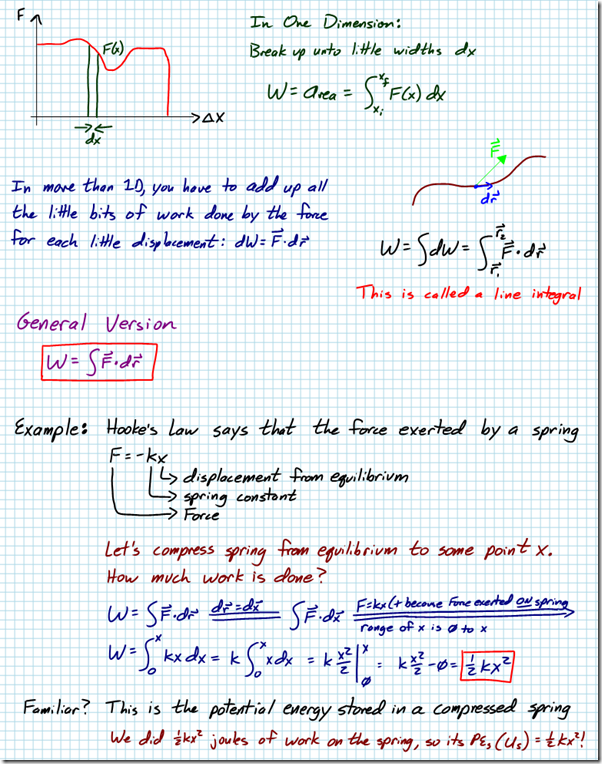 F
F(x)
ΔX
dx
In One Dimension:
Break up unto little widths dx
W = area = ∫_{x_i}^{x_f} F(x) dx
In more than 1D, you have to add up all
the little bits of work done by the force
for each little displacement: dW = F⃗·dr⃗
F⃗
dr⃗
W = ∫dW = ∫_{r⃗₁}^{r⃗₂} F⃗·dr⃗
This is called a line integral
General Version
W = ∫F⃗·dr⃗
Example: Hooke's Law says that the force exerted by a spring
F = -kx
displacement from equilibrium
spring constant
Force
Let's compress spring from equilibrium to some point x.
How much work is done?
W = ∫F⃗·dr⃗ dr⃗=dx⃗ ∫F⃗·dx⃗ F=kx (+ because Force exerted ON spring
range of x is 0 to x
W = ∫_0^x kx dx = k ∫_0^x x dx = k x²/2 |_0^x = k x²/2 - 0 = ½kx²
Familiar? This is the potential energy stored in a compressed spring
We did ½kx² joules of work on the spring, so its PE_s (U_s) = ½kx²!